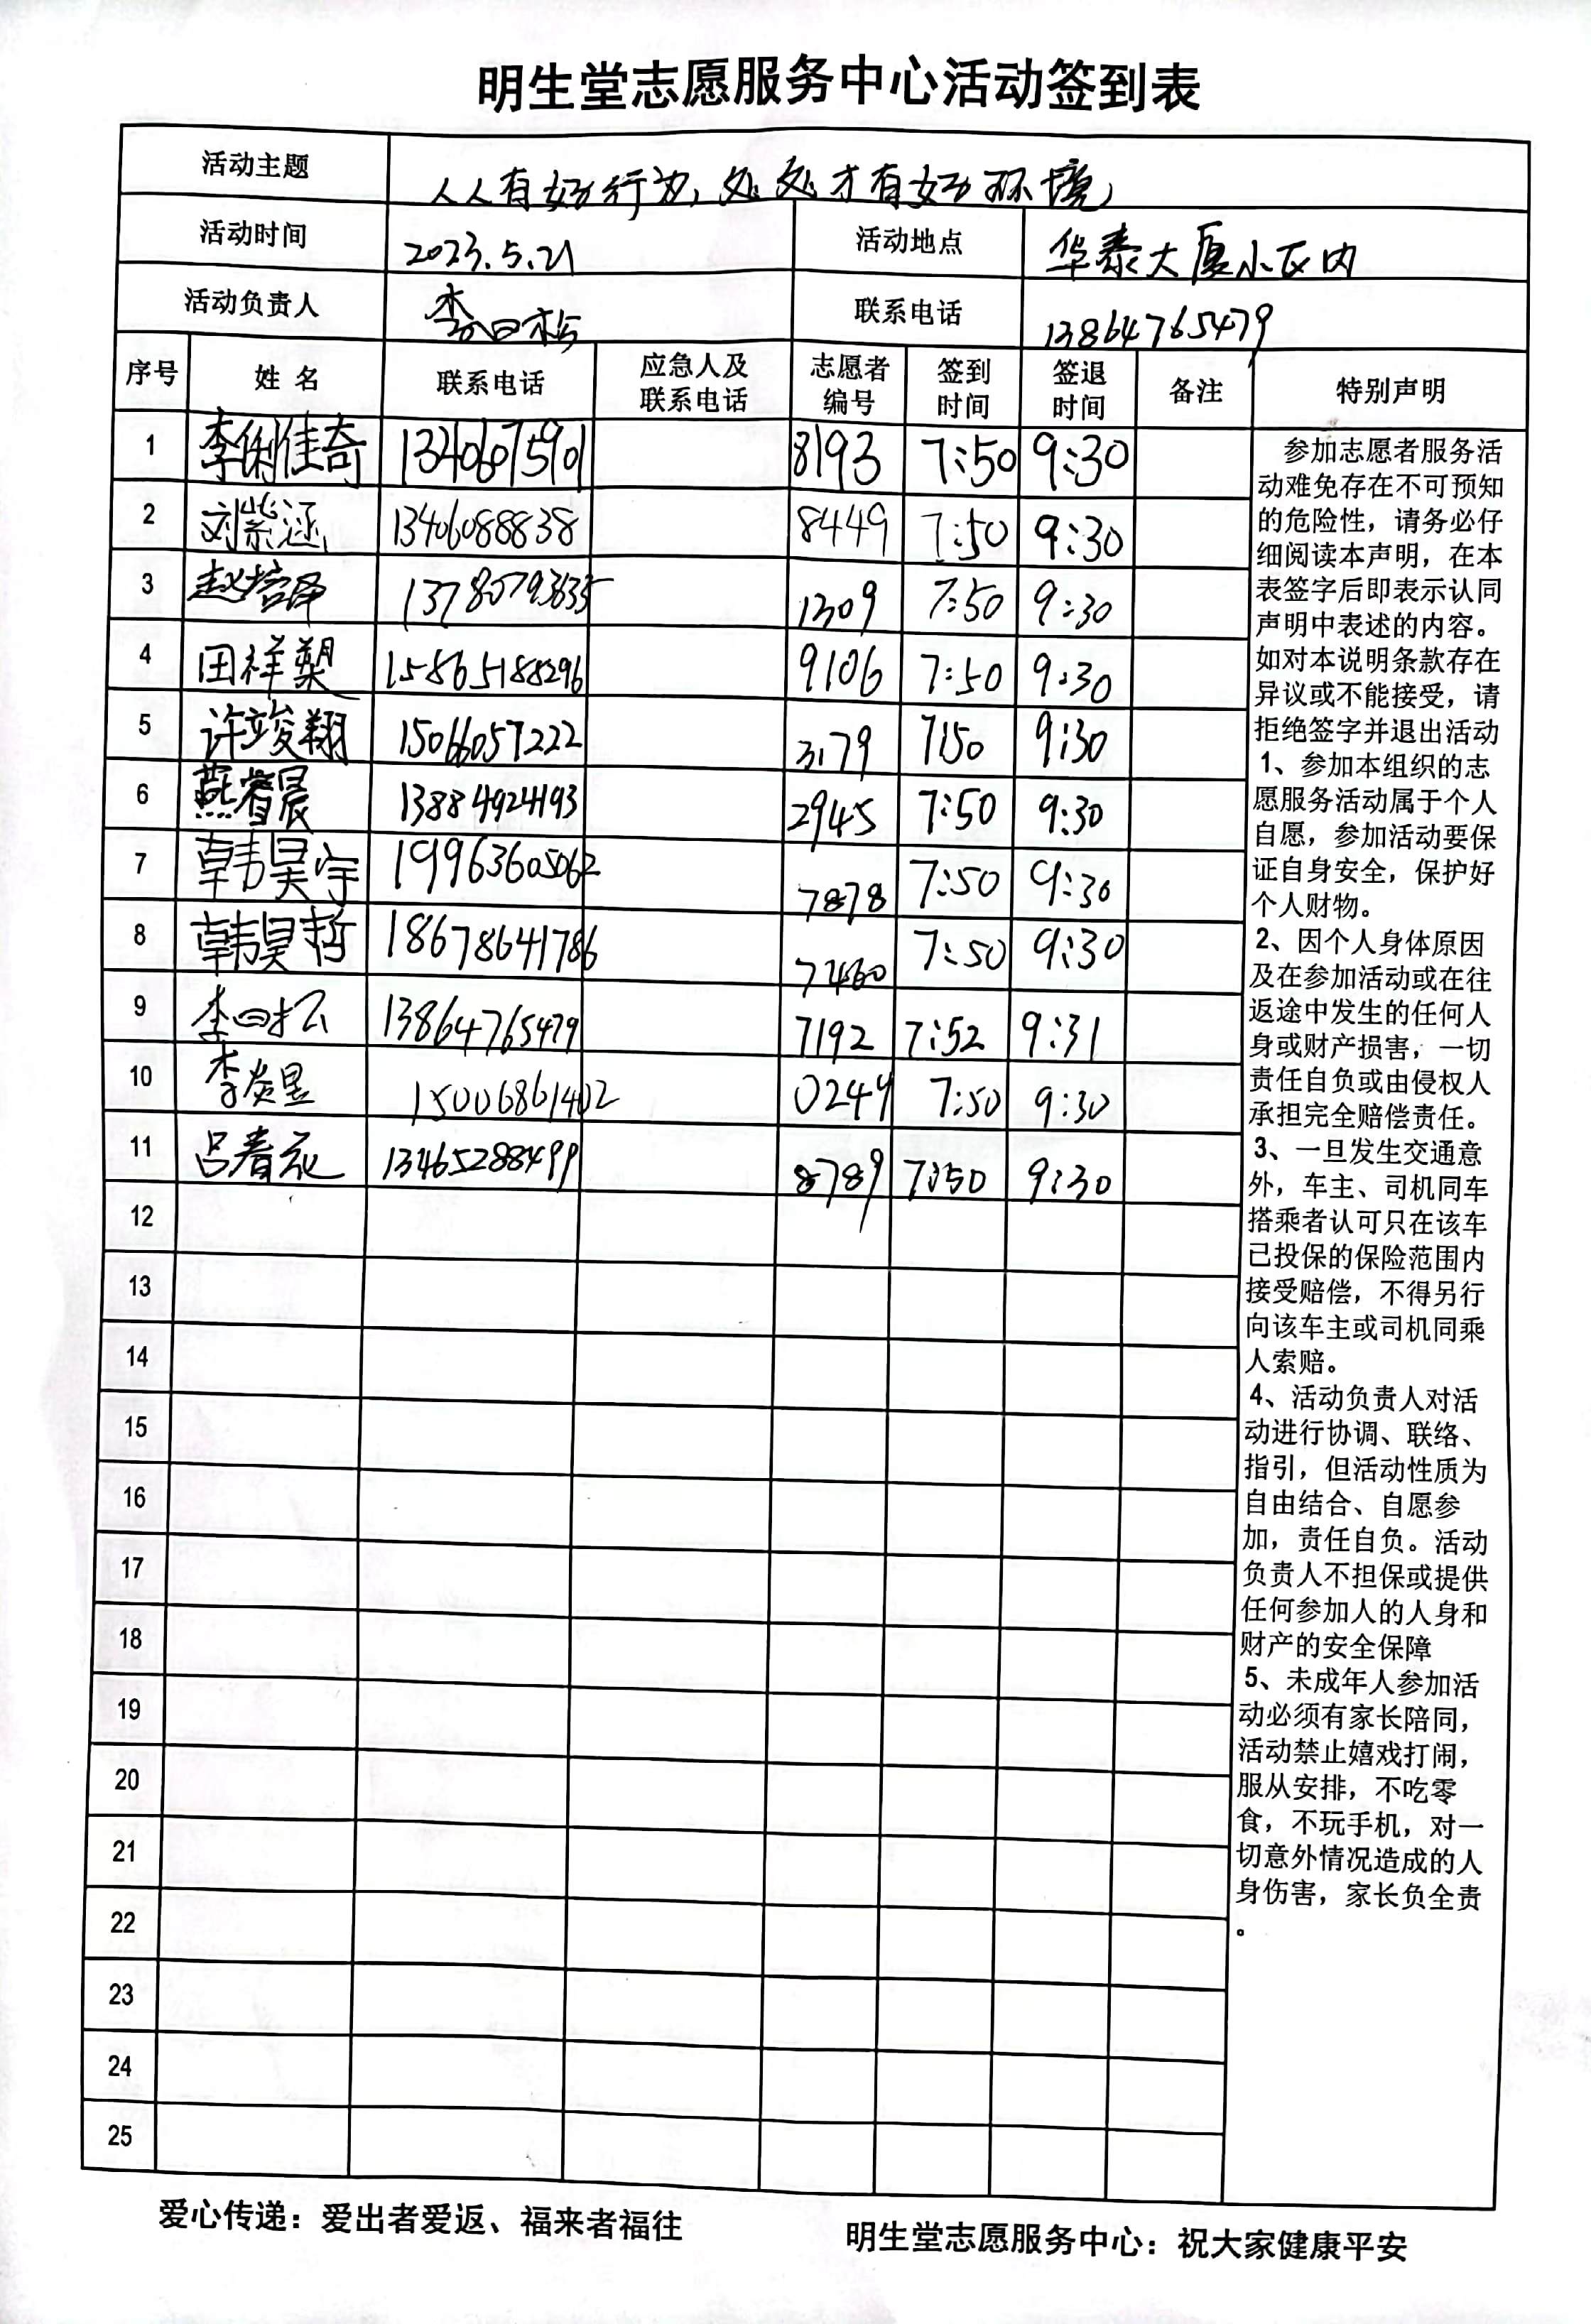 明生堂志愿服务中心活动签到表
活动主题 人人有好行为，处处才有好环境，
活动时间 2023.5.21 活动地点 华泰大厦小区内
活动负责人 李 联系电话 13864765479
序号 姓 名 联系电话 应急人及联系电话 志愿者编号 签到时间 签退时间 备注 特别声明
1 李俐佳奇 13406075901 8193 7:50 9:30
2 刘紫涵 13406088838 8449 7:50 9:30
3 赵培译 13780793635 1309 7:50 9:30
4 田祥 15865188296 9106 7:50 9:30
5 许竣翔 15066057222 3179 7:50 9:30
6 燕睿晨 13884924193 2945 7:50 9:30
7 韩昊宇 19963605062 7878 7:50 9:30
8 韩昊哲 18678641786 7460 7:50 9:30
9 李 13864765479 7192 7:52 9:31
10 李炎昱 15006861402 0249 7:50 9:30
11 吕春 13465288499 8789 7:50 9:30
12
13
14
15
16
17
18
19
20
21
22
23
24
25
参加志愿者服务活
动难免存在不可预知
的危险性，请务必仔
细阅读本声明，在本
表签字后即表示认同
声明中表述的内容。
如对本说明条款存在
异议或不能接受，请
拒绝签字并退出活动
1、参加本组织的志
愿服务活动属于个人
自愿，参加活动要保
证自身安全，保护好
个人财物。
2、因个人身体原因
及在参加活动或在往
返途中发生的任何人
身或财产损害，一切
责任自负或由侵权人
承担完全赔偿责任。
3、一旦发生交通意
外，车主、司机同车
搭乘者认可只在该车
已投保的保险范围内
接受赔偿，不得另行
向该车主或司机同乘
人索赔。
4、活动负责人对活
动进行协调、联络、
指引，但活动性质为
自由结合、自愿参
加，责任自负。活动
负责人不担保或提供
任何参加人的人身和
财产的安全保障
5、未成年人参加活
动必须有家长陪同，
活动禁止嬉戏打闹，
服从安排，不吃零
食，不玩手机，对一
切意外情况造成的人
身伤害，家长负全责
。
爱心传递：爱出者爱返、福来者福往 明生堂志愿服务中心：祝大家健康平安